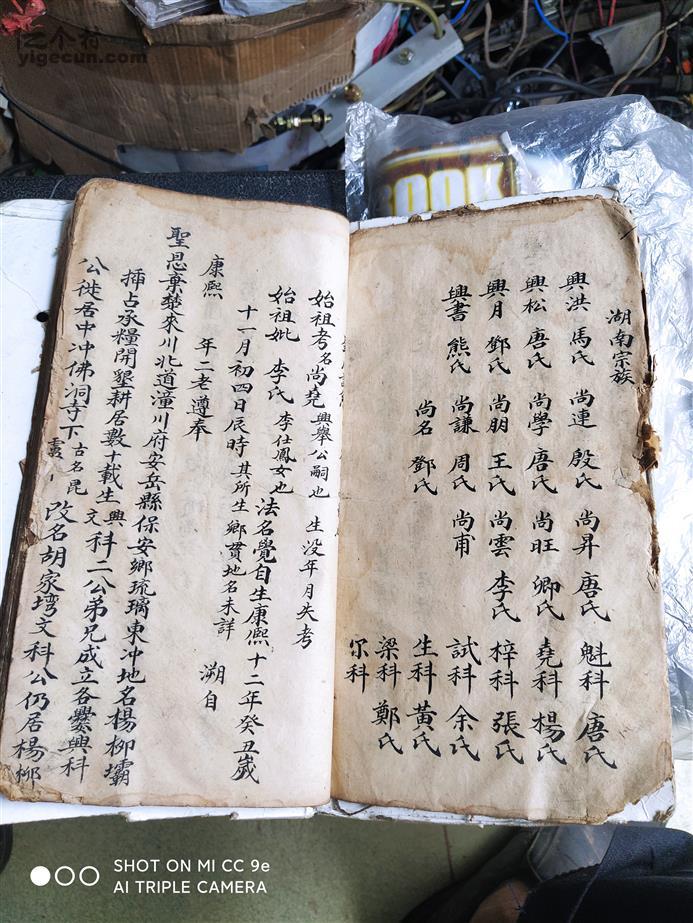 亿个村
yigecun.com
BOOK
湖南宗族
興洪 馬氏 尚連 殷氏 尚昇 唐氏 魁科 唐氏
興松 唐氏 尚學 唐氏 尚旺 卿氏 堯科 楊氏
興月 鄧氏 尚朋 王氏 尚雲 李氏 梓科 張氏
興書 熊氏 尚謙 周氏 尚甫 試科 余氏
尚名 鄧氏 生科 黃氏
梁科 鄭氏
尔科
始祖考名尚堯 興舉公嗣也 生没年月失考
始祖妣 李氏 李仕鳳女也 法名覺自生康熙十二年癸丑歲
十一月初四日辰時 其所生鄉貫地名未詳 溯自
康熙 年二老遵奉
聖恩棄楚來川北道潼川府安岳縣保安鄉琉璃東冲地名楊柳壩
揷占承糧開墾耕居數十載生興文科二公弟兄成立各爨興科
公徙居中冲佛洞寺下古名昆 改名胡家塆文科公仍居楊柳
SHOT ON MI CC 9e
AI TRIPLE CAMERA